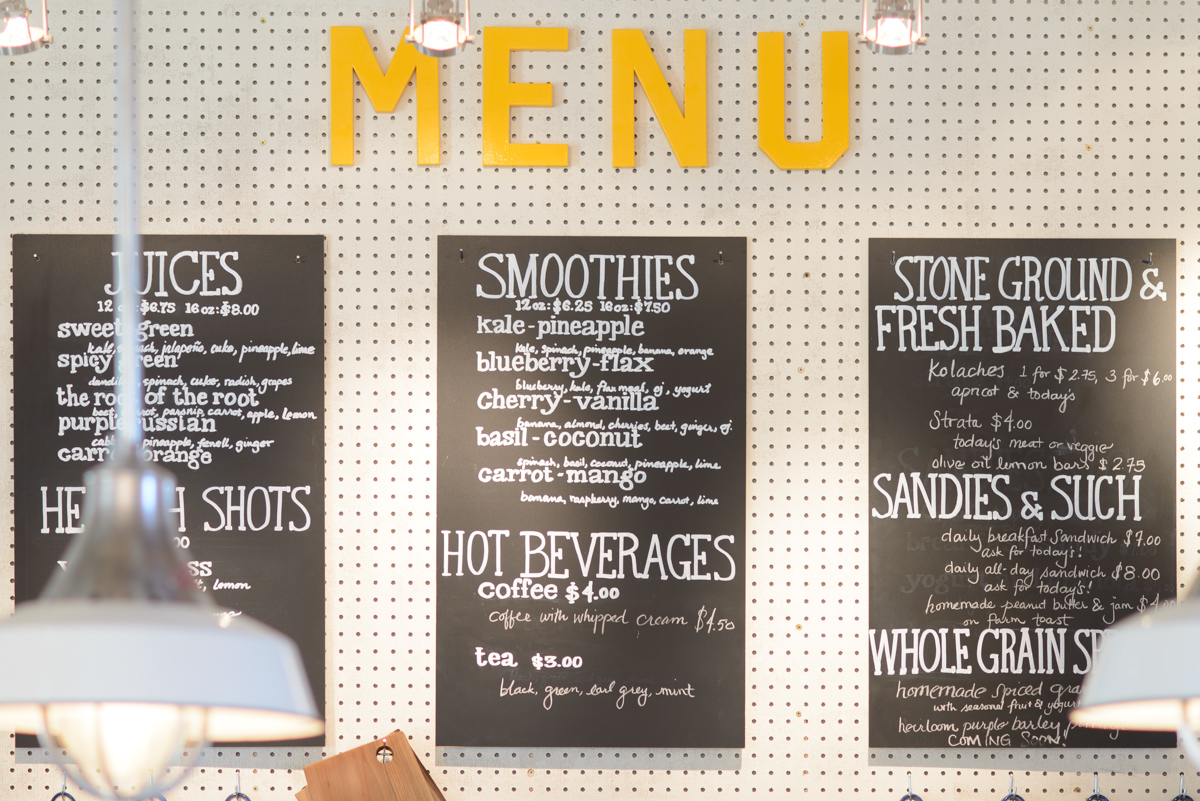 MENU
JUICES
12 oz: $6.75 16 oz: $8.00
sweet green
kale, jalapeño, cuke, pineapple, lime
spicy green
spinach, cuke, radish, grapes
the root of the root
beet, parsnip, carrot, apple, lemon
purple russian
pineapple, fenell, ginger
carrot orange
HEALTH SHOTS
lemon
SMOOTHIES
12oz: $6.25 16oz: $7.50
kale-pineapple
kale, spinach, pineapple, banana, orange
blueberry-flax
blueberry, kale, flax meal, oj, yogurt
cherry-vanilla
banana, almond, cherries, beet, ginger, oj
basil-coconut
spinach, basil, coconut, pineapple, lime
carrot-mango
banana, raspberry, mango, carrot, lime
HOT BEVERAGES
coffee $4.00
coffee with whipped cream $4.50
tea $3.00
black, green, earl grey, mint
STONE GROUND &
FRESH BAKED
Kolaches 1 for $2.75, 3 for $6.00
apricot & today's
Strata $4.00
today's meat or veggie
olive oil lemon bars $2.75
SANDIES & SUCH
daily breakfast sandwich $7.00
ask for today's!
daily all-day sandwich $8.00
ask for today's!
homemade peanut butter & jam
on farm toast
WHOLE GRAIN
homemade spiced
with seasonal fruit & yogurt
heirloom purple barley
COMING SOON!